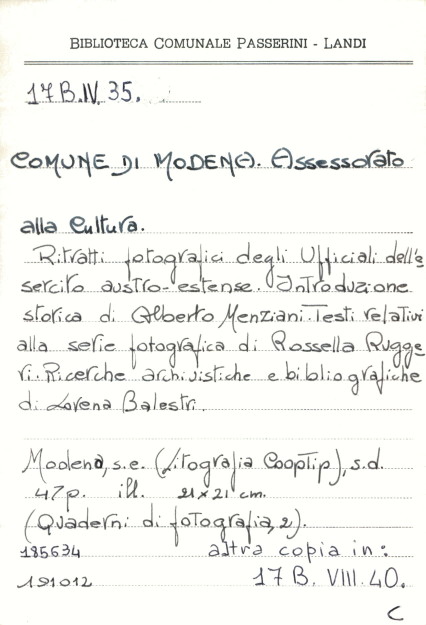 BIBLIOTECA COMUNALE PASSERINI - LANDI
17 B.IV. 35.
COMUNE DI MODENA. Assessorato
alla Cultura.
Ritratti fotografici degli Ufficiali dell'e
sercito austro-estense. Introduzione
storica di Alberto Menziani. Testi relativi
alla serie fotografica di Rossella Rugge
ri. Ricerche archivistiche e bibliografiche
di Lorena Balestri.
Modena, s.e. (Litografia CoopTip), s.d.
47p. ill. 21x21 cm.
(Quaderni di fotografia, 2).
185634 altra copia in:
191012 17 B. VIII. 40.
C